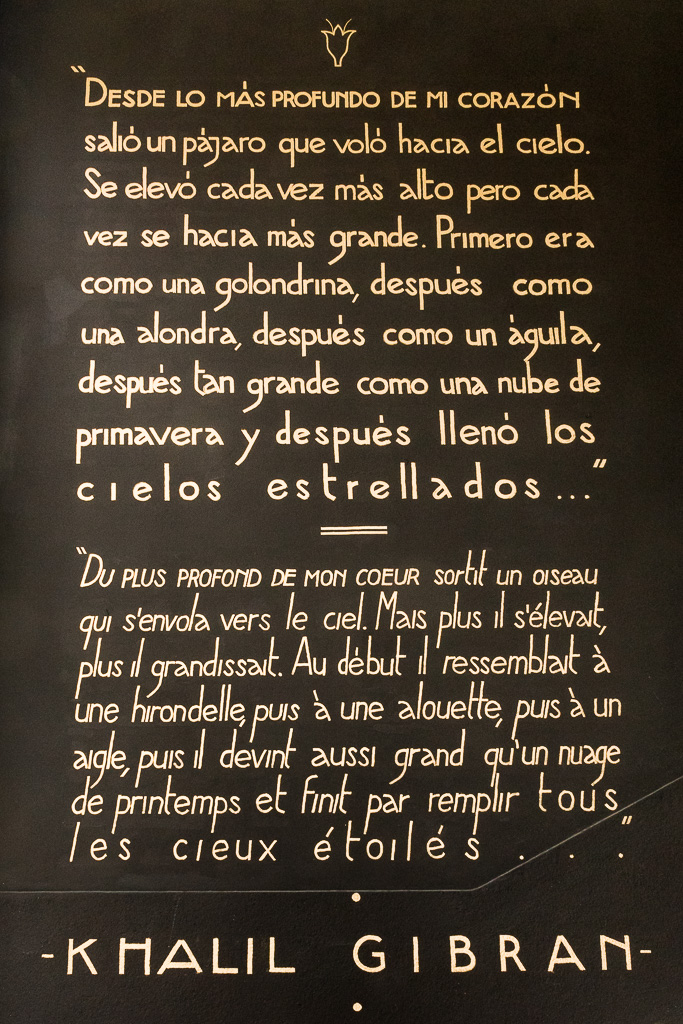 "DESDE LO MÁS PROFUNDO DE MI CORAZÓN
salió un pájaro que voló hacia el cielo.
Se elevó cada vez más alto pero cada
vez se hacia más grande. Primero era
como una golondrina, después como
una alondra, después como un àguila,
después tan grande como una nube de
primavera y después llenó los
cielos estrellados..."
"DU PLUS PROFOND DE MON COEUR sortit un oiseau
qui s'envola vers le ciel. Mais plus il s'élevait,
plus il grandissait. Au début il ressemblait à
une hirondelle, puis à une alouette, puis à un
aigle, puis il devint aussi grand qu'un nuage
de printemps et finit par remplir tous
les cieux étoilés . . ."
-KHALIL GIBRAN-